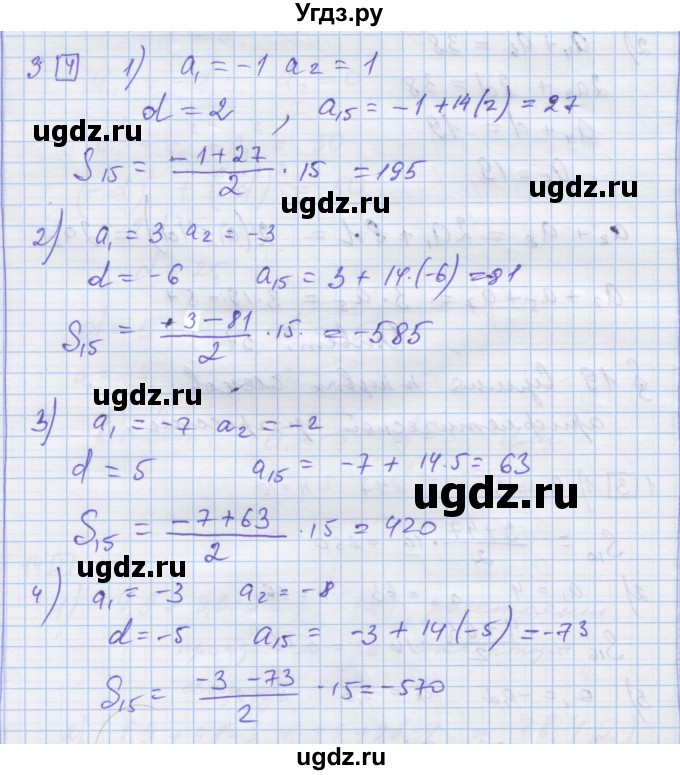 Угдз.ру
3 [4] 1) a₁ = -1 a₂ = 1
d = 2 , a₁₅ = -1 + 14(2) = 27
ugdz.ru
ugdz.ru
S₁₅ = (-1+27)/2 · 15 = 195
ugdz.ru
2) a₁ = 3 a₂ = -3
d = -6 a₁₅ = 3 + 14·(-6) = -81
S₁₅ = (3-81)/2 · 15 = -585
ugdz.ru
3) a₁ = -7 a₂ = -2
d = 5 a₁₅ = -7 + 14·5 = 63
ugdz.ru
S₁₅ = (-7+63)/2 · 15 = 420
ugdz.ru
4) a₁ = -3 a₂ = -8
d = -5 a₁₅ = -3 + 14(-5) = -73
ugdz.ru
S₁₅ = (-3-73)/2 · 15 = -570
ugdz.ru
ugdz.ru